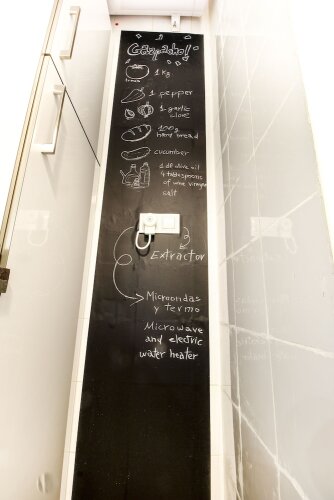 Gazpacho!
1 kg
1 pepper
1 garlic
clove
100g
hard bread
cucumber
1 dl olive oil
4 tablespoons
of wine vinegar
salt
Extractor
Microondas
y termo
Microwave
and electric
water heater